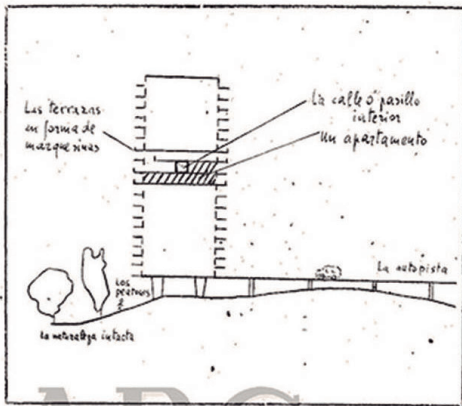 Las terrazas
en forma de
marquesinas
La calle o pasillo
interior
Un apartamento
Los
peatones
La autopista
La naturaleza intacta
ABC